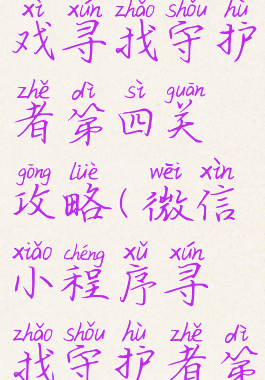 xì xún zhǎo shǒu hù
戏寻找守护
zhě dì sì guān
者第四关
gōng lüè wēi xìn
攻略(微信
xiǎo chéng xǔ xún
小程序寻
zhǎo shǒu hù zhě dì
找守护者第